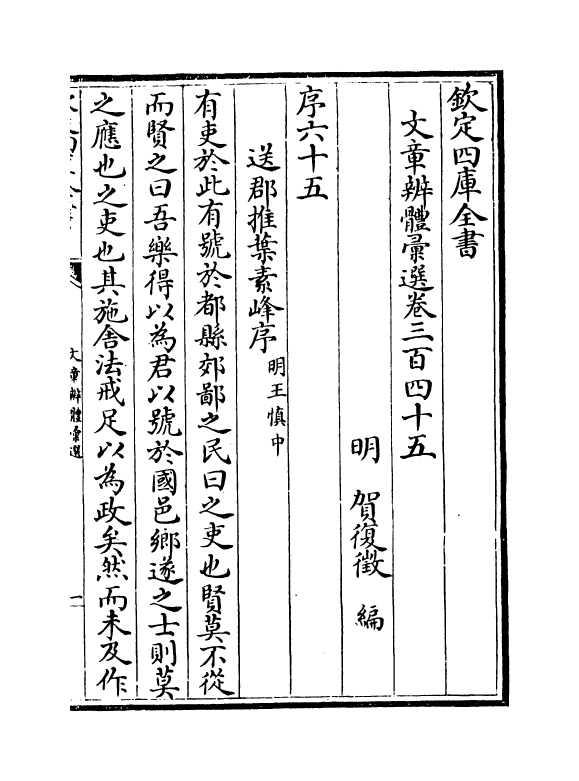 欽定四庫全書
文章辨體彚選卷三百四十五
明 賀復徵 編
序六十五
送郡推葉素峰序 明王慎中
有吏於此有號於都縣郊鄙之民曰之吏也賢莫不從
而賢之曰吾樂得以為君以號於國邑鄉遂之士則莫
之應也之吏也其施舍法戒足以為政矣然而未及作
文章辨體彚選